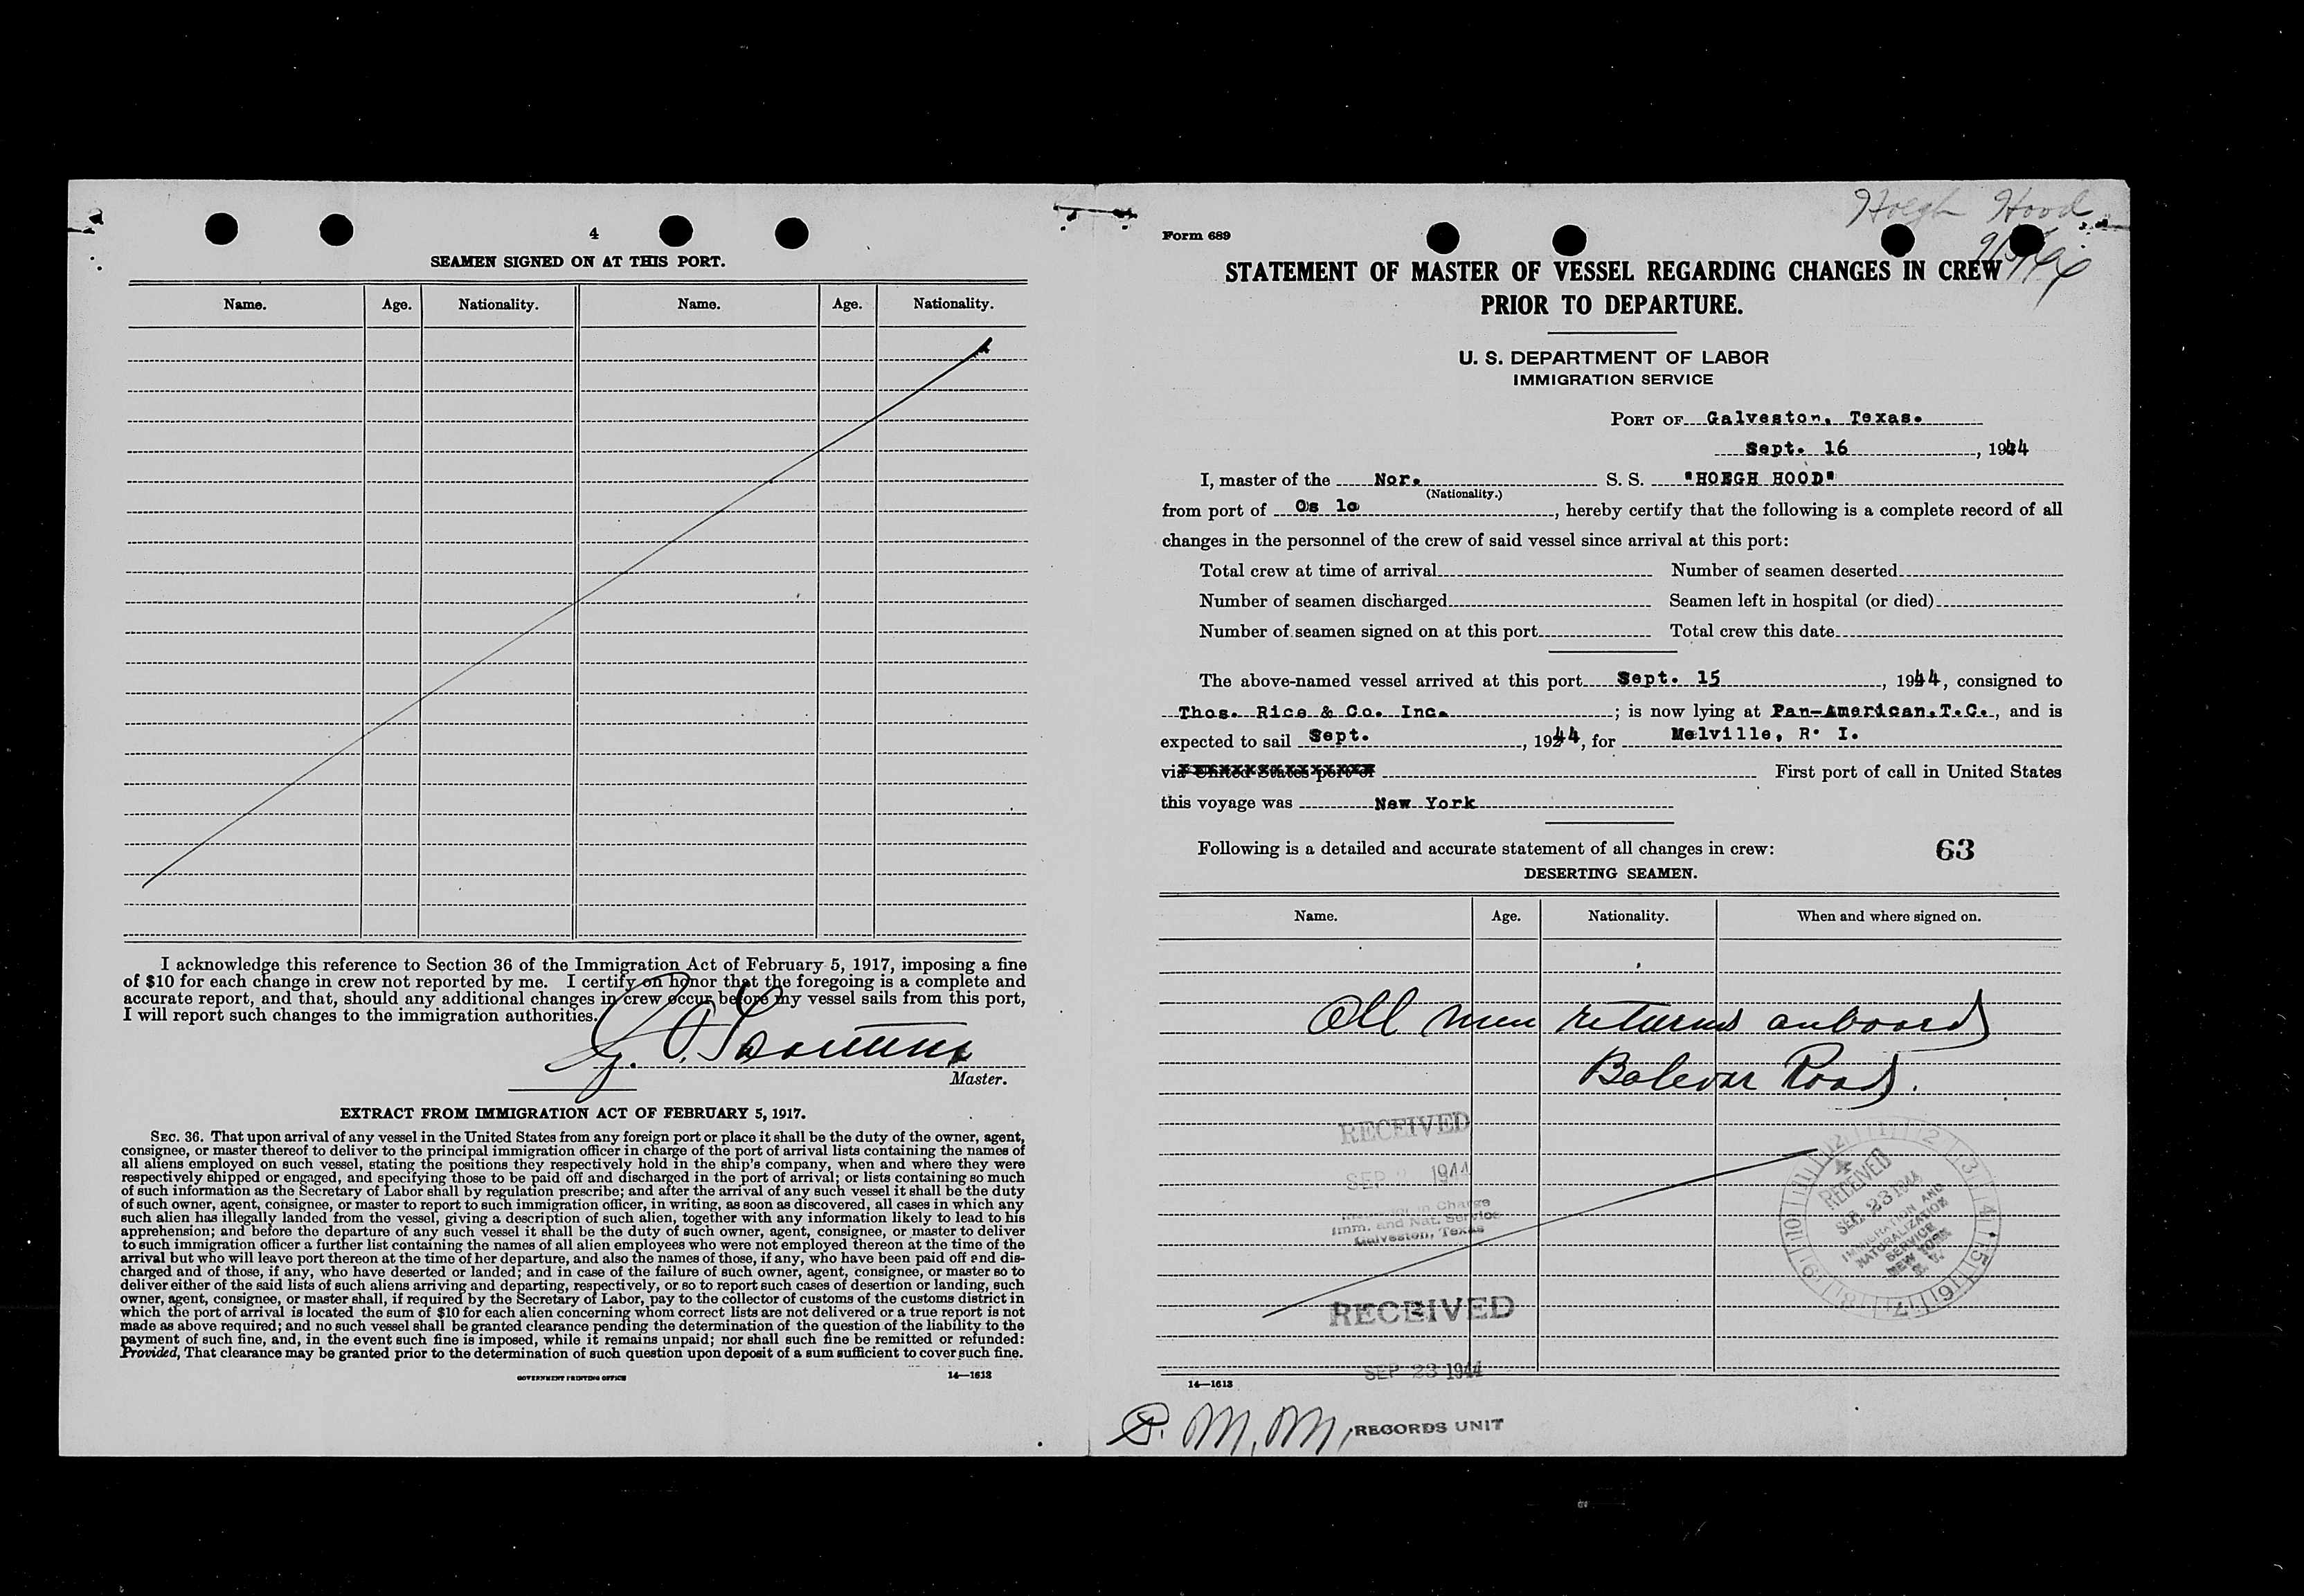 4
SEAMEN SIGNED ON AT THIS PORT.
Name. Age. Nationality. Name. Age. Nationality.
I acknowledge this reference to Section 36 of the Immigration Act of February 5, 1917, imposing a fine
of $10 for each change in crew not reported by me. I certify on honor that the foregoing is a complete and
accurate report, and that, should any additional changes in crew occur before my vessel sails from this port,
I will report such changes to the immigration authorities.
Master.
EXTRACT FROM IMMIGRATION ACT OF FEBRUARY 5, 1917.
SEC. 36. That upon arrival of any vessel in the United States from any foreign port or place it shall be the duty of the owner, agent,
consignee, or master thereof to deliver to the principal immigration officer in charge of the port of arrival lists containing the names of
all aliens employed on such vessel, stating the positions they respectively hold in the ship's company, when and where they were
respectively shipped or engaged, and specifying those to be paid off and discharged in the port of arrival; or lists containing so much
of such information as the Secretary of Labor shall by regulation prescribe; and after the arrival of any such vessel it shall be the duty
of such owner, agent, consignee, or master to report to such immigration officer, in writing, as soon as discovered, all cases in which any
such alien has illegally landed from the vessel, giving a description of such alien, together with any information likely to lead to his
apprehension; and before the departure of any such vessel it shall be the duty of such owner, agent, consignee, or master to deliver
to such immigration officer a further list containing the names of all alien employees who were not employed thereon at the time of the
arrival but who will leave port thereon at the time of her departure, and also the names of those, if any, who have been paid off and dis-
charged and of those, if any, who have deserted or landed; and in case of the failure of such owner, agent, consignee, or master so to
deliver either of the said lists of such aliens arriving and departing, respectively, or so to report such cases of desertion or landing, such
owner, agent, consignee, or master shall, if required by the Secretary of Labor, pay to the collector of customs of the customs district in
which the port of arrival is located the sum of $10 for each alien concerning whom correct lists are not delivered or a true report is not
made as above required; and no such vessel shall be granted clearance pending the determination of the question of the liability to the
payment of such fine, and, in the event such fine is imposed, while it remains unpaid; nor shall such fine be remitted or refunded:
Provided, That clearance may be granted prior to the determination of such question upon deposit of a sum sufficient to cover such fine.
GOVERNMENT PRINTING OFFICE
14—1613
Hoegh Hood
Form 689
STATEMENT OF MASTER OF VESSEL REGARDING CHANGES IN CREW
PRIOR TO DEPARTURE.
U. S. DEPARTMENT OF LABOR
IMMIGRATION SERVICE
PORT OF Galveston, Texas.
Sept. 16, 1944
I, master of the Nor. S. S. "HOEGH HOOD"
(Nationality.)
from port of Os lo, hereby certify that the following is a complete record of all
changes in the personnel of the crew of said vessel since arrival at this port:
Total crew at time of arrival Number of seamen deserted
Number of seamen discharged Seamen left in hospital (or died)
Number of seamen signed on at this port Total crew this date
The above-named vessel arrived at this port Sept. 15, 1944, consigned to
Thos. Rice & Co. Inc. ; is now lying at Pan-American.T.C., and is
expected to sail Sept., 1944, for Melville, R. I.
via United States port of First port of call in United States
this voyage was New York
Following is a detailed and accurate statement of all changes in crew: 63
DESERTING SEAMEN.
Name. Age. Nationality. When and where signed on.
All men returns onboard
Bolevar Roads.
RECEIVED
SEP 1944
in Charge
Imm. and Nat. Service
Galveston, Texas
12 1 2 3 4 5 6 7 8 9 10 11
RECEIVED
SEP 23 1944
IMMIGRATION AND
NATURALIZATION
SERVICE
NEW YORK
N. Y.
RECEIVED
SEP 23 1944
14—1613
P. M. M. RECORDS UNIT